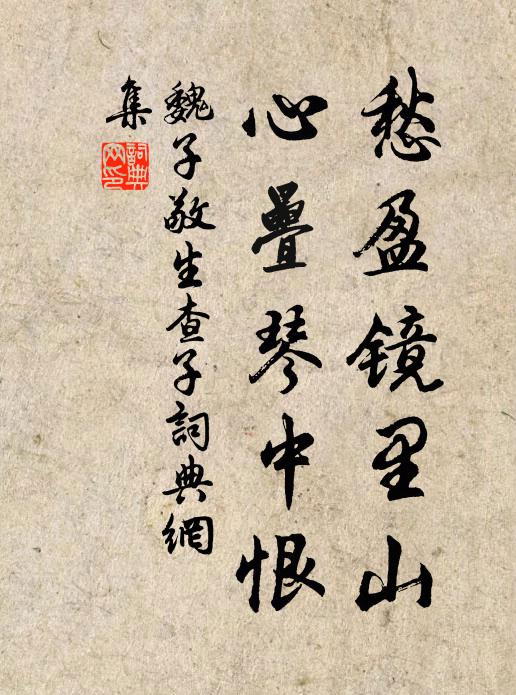 愁盈镜里山
心疊琴中恨
魏子敬生查子詞典網
集
詞典
网印